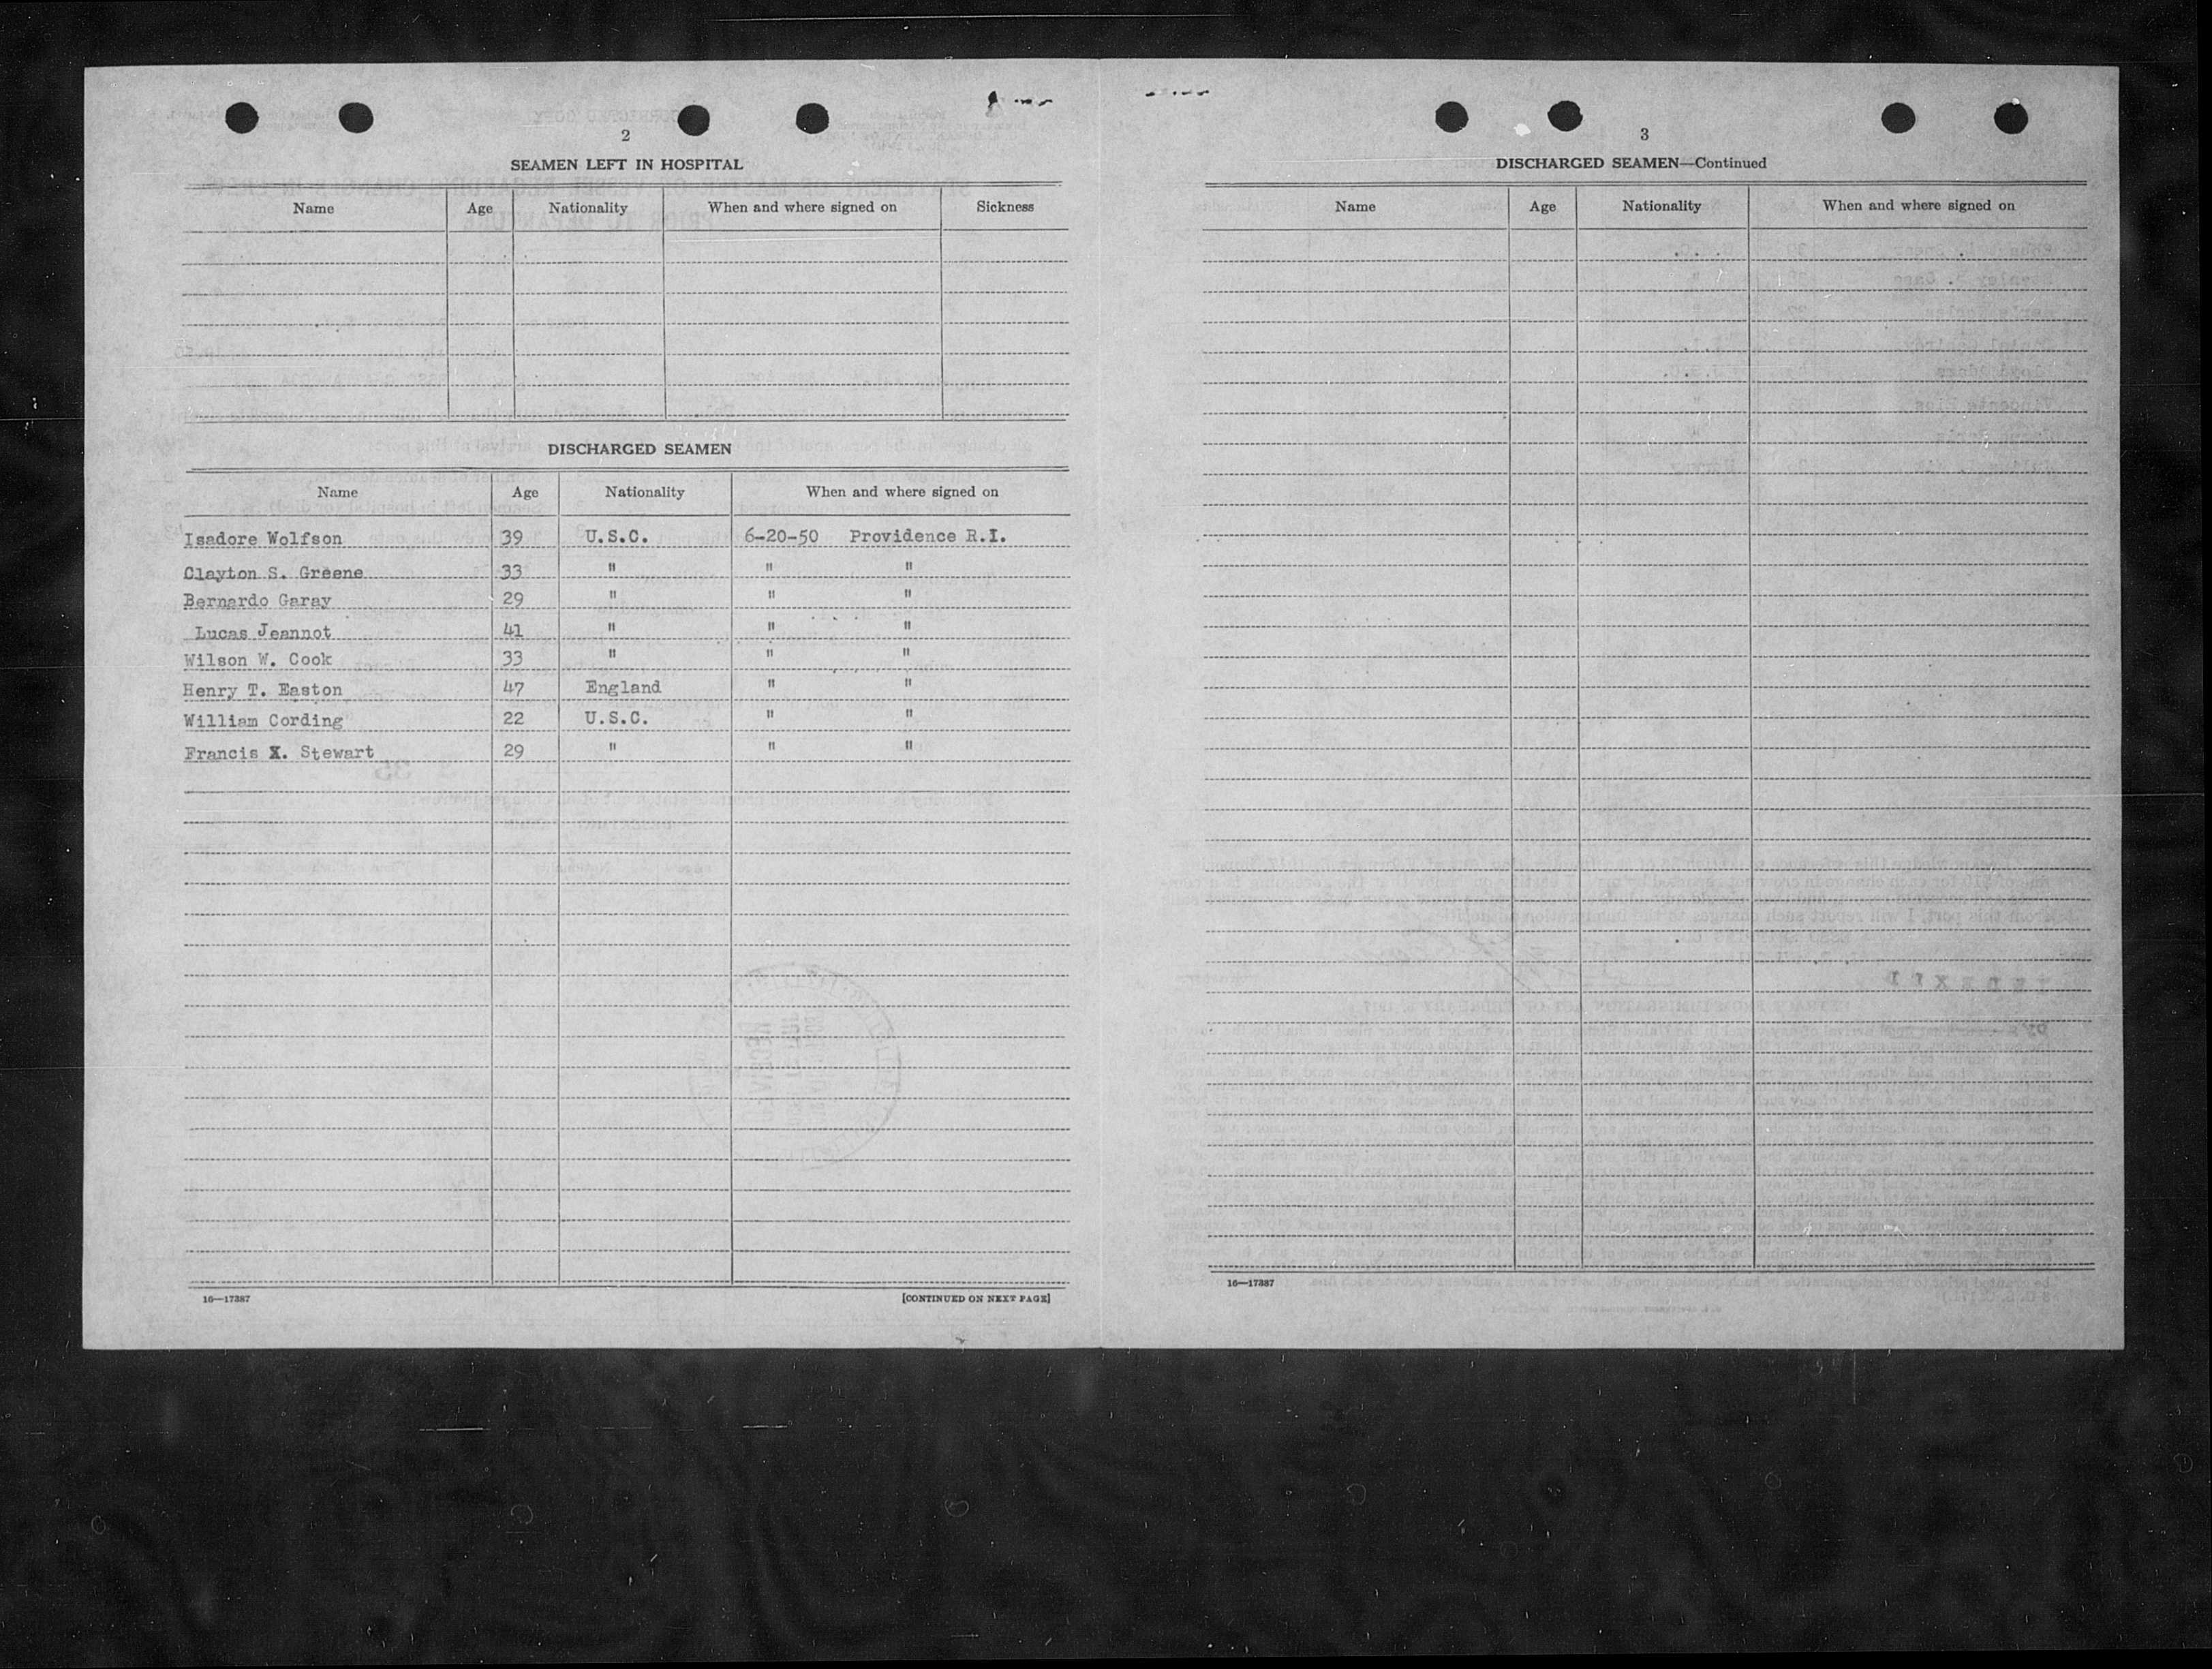 2
SEAMEN LEFT IN HOSPITAL
Name Age Nationality When and where signed on Sickness
DISCHARGED SEAMEN
Name Age Nationality When and where signed on
Isadore Wolfson 39 U.S.C. 6-20-50 Providence R.I.
Clayton S. Greene 33 " " "
Bernardo Garay 29 " " "
Lucas Jeannot 41 " " "
Wilson W. Cook 33 " " "
Henry T. Easton 47 England " "
William Cording 22 U.S.C. " "
Francis X. Stewart 29 " " "
16—17387 [CONTINUED ON NEXT PAGE]
3
DISCHARGED SEAMEN—Continued
Name Age Nationality When and where signed on
16—17387